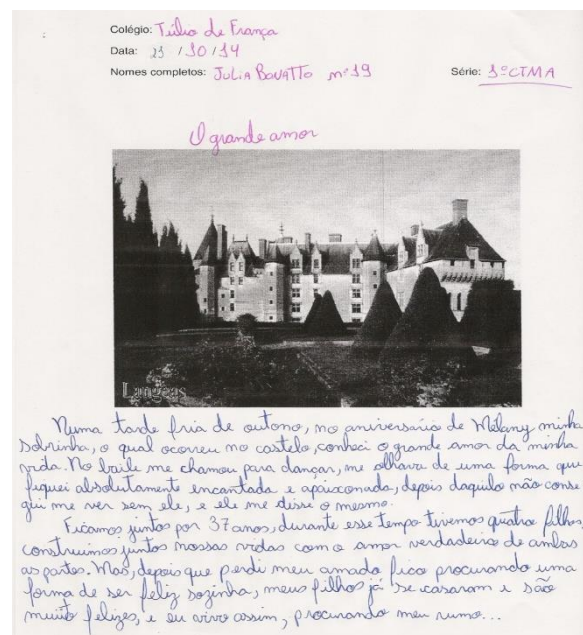 Colégio: Túlio de França
Data: 23 / 10 / 14
Nomes completos: JULIA BOVATTO nº 19 Série: 1º CTMA
O grande amor
Langeais
Numa tarde fria de outono, no aniversário de Mélany minha
sobrinha, o qual ocorreu no castelo, conheci o grande amor da minha
vida. No baile me chamou para dançar, me olhava de uma forma que
fiquei absolutamente encantada e apaixonada, depois daquilo não conse
gui me ver sem ele, e ele me disse o mesmo.
Ficamos juntos por 37 anos, durante esse tempo tivemos quatro filhos
construimos juntos nossas vidas com o amor verdadeiro de ambas
as partes. Mas, depois que perdi meu amado fico procurando uma
forma de ser feliz sozinha, meus filhos já se casaram e são
muito felizes, e eu vivo assim, procurando meu rumo...